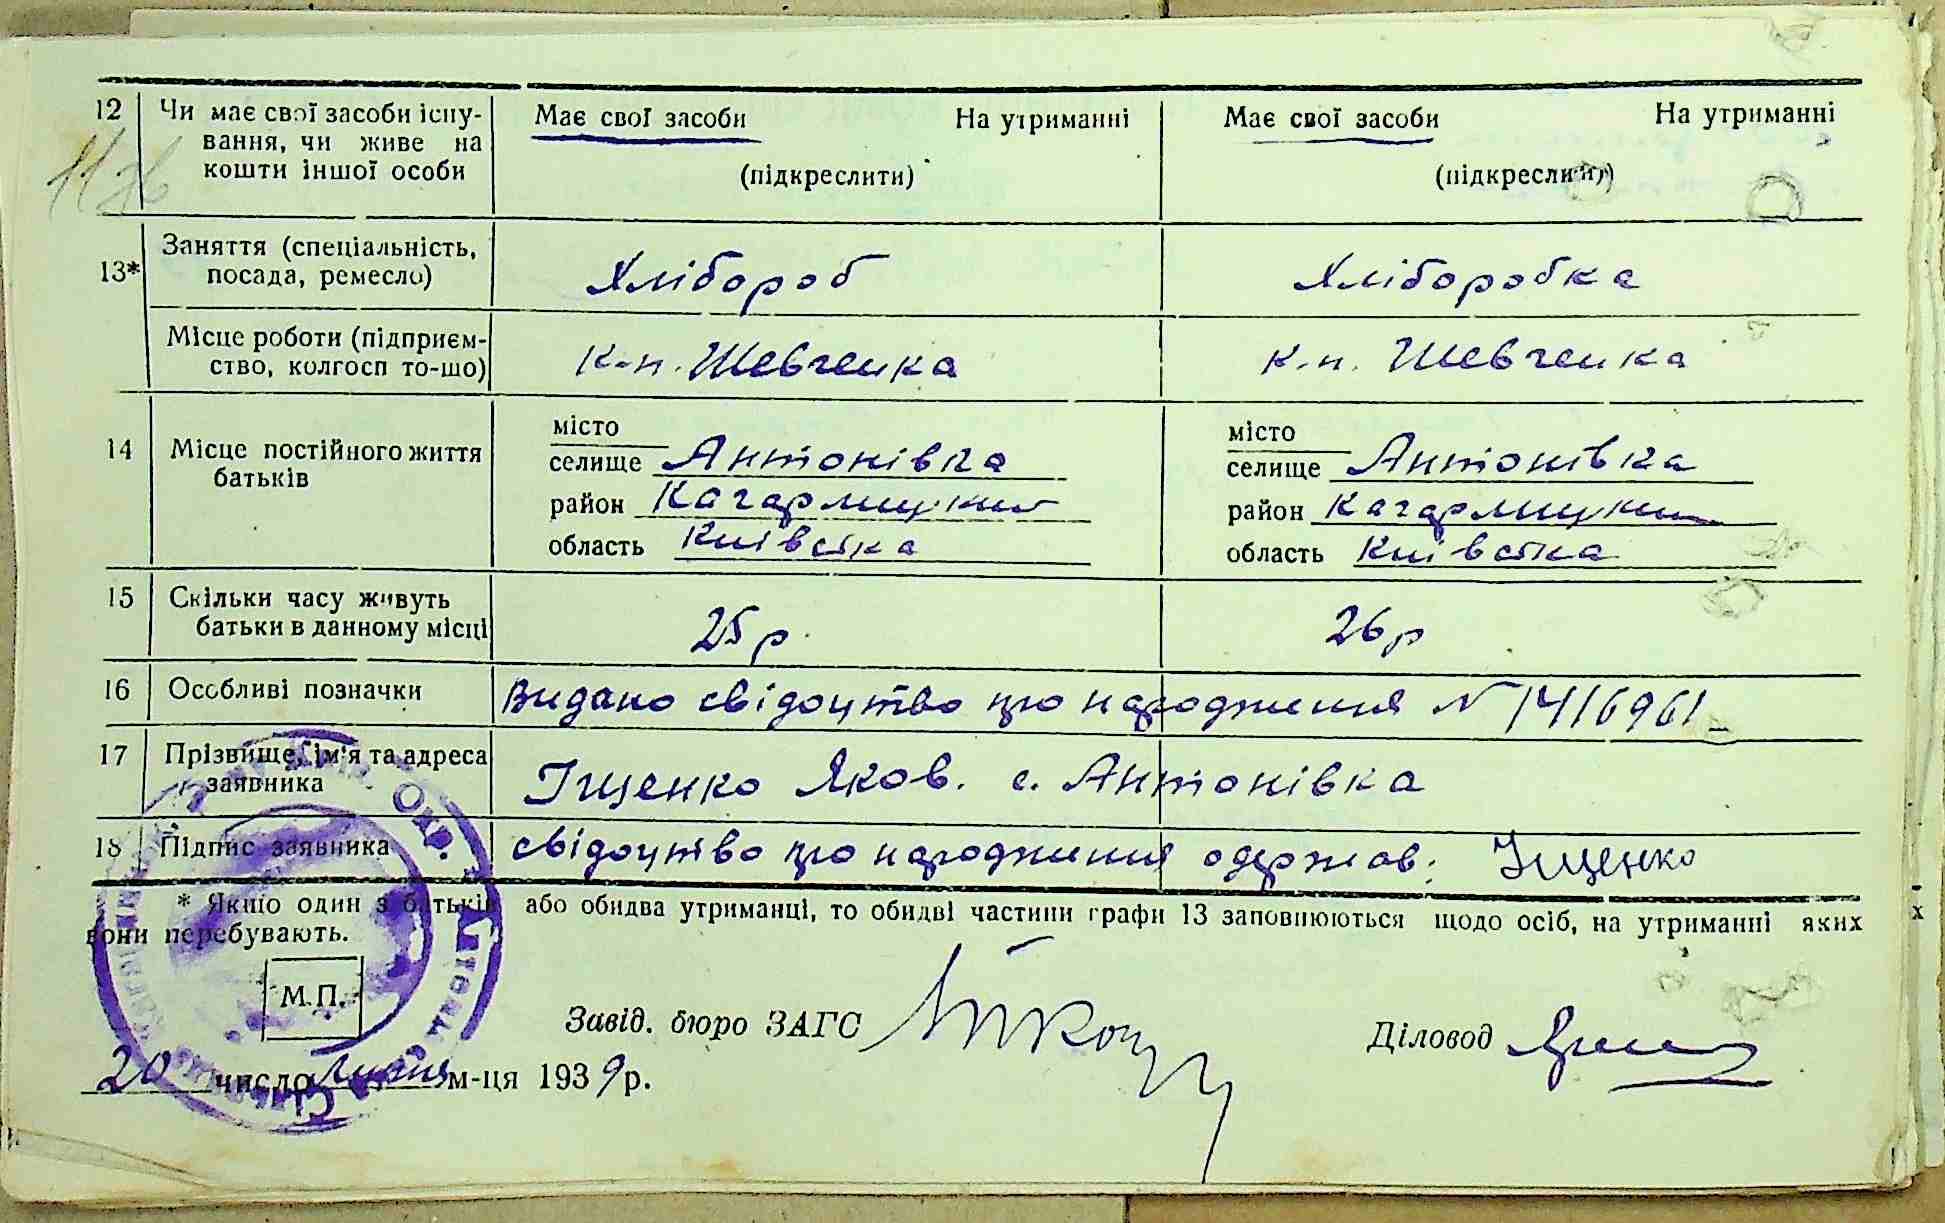 12 Чи має свої засоби існу- Має свої засоби На утриманні Має свої засоби На утриманні
вання, чи живе на
кошти іншої особи (підкреслити) (підкреслити)
13* Заняття (спеціальність,
посада, ремесло) Хлібороб Хліборобка
Місце роботи (підприєм-
ство, колгосп то-що) к-п. Шевченка к.п. Шевченка
місто місто
14 Місце постійного життя селище Антонівка селище Антонівка
батьків район Кагарлицький район Кагарлицький
область Київська область Київська
15 Скільки часу живуть
батьки в данному місці 25 р. 26 р
16 Особливі позначки Видано свідоцтво про народження N 1416961
17 Прізвище, ім'я та адреса
заявника Іщенко Яков. с. Антонівка
18 Підпис заявника свідоцтво про народження одержав: Іщенко
* Якщо один з батьків або обидва утриманці, то обидві частини графи 13 заповнюються щодо осіб, на утриманні яких
вони перебувають.
М.П.
Завід. бюро ЗАГС Діловод
20 число липня м-ця 1939 р.